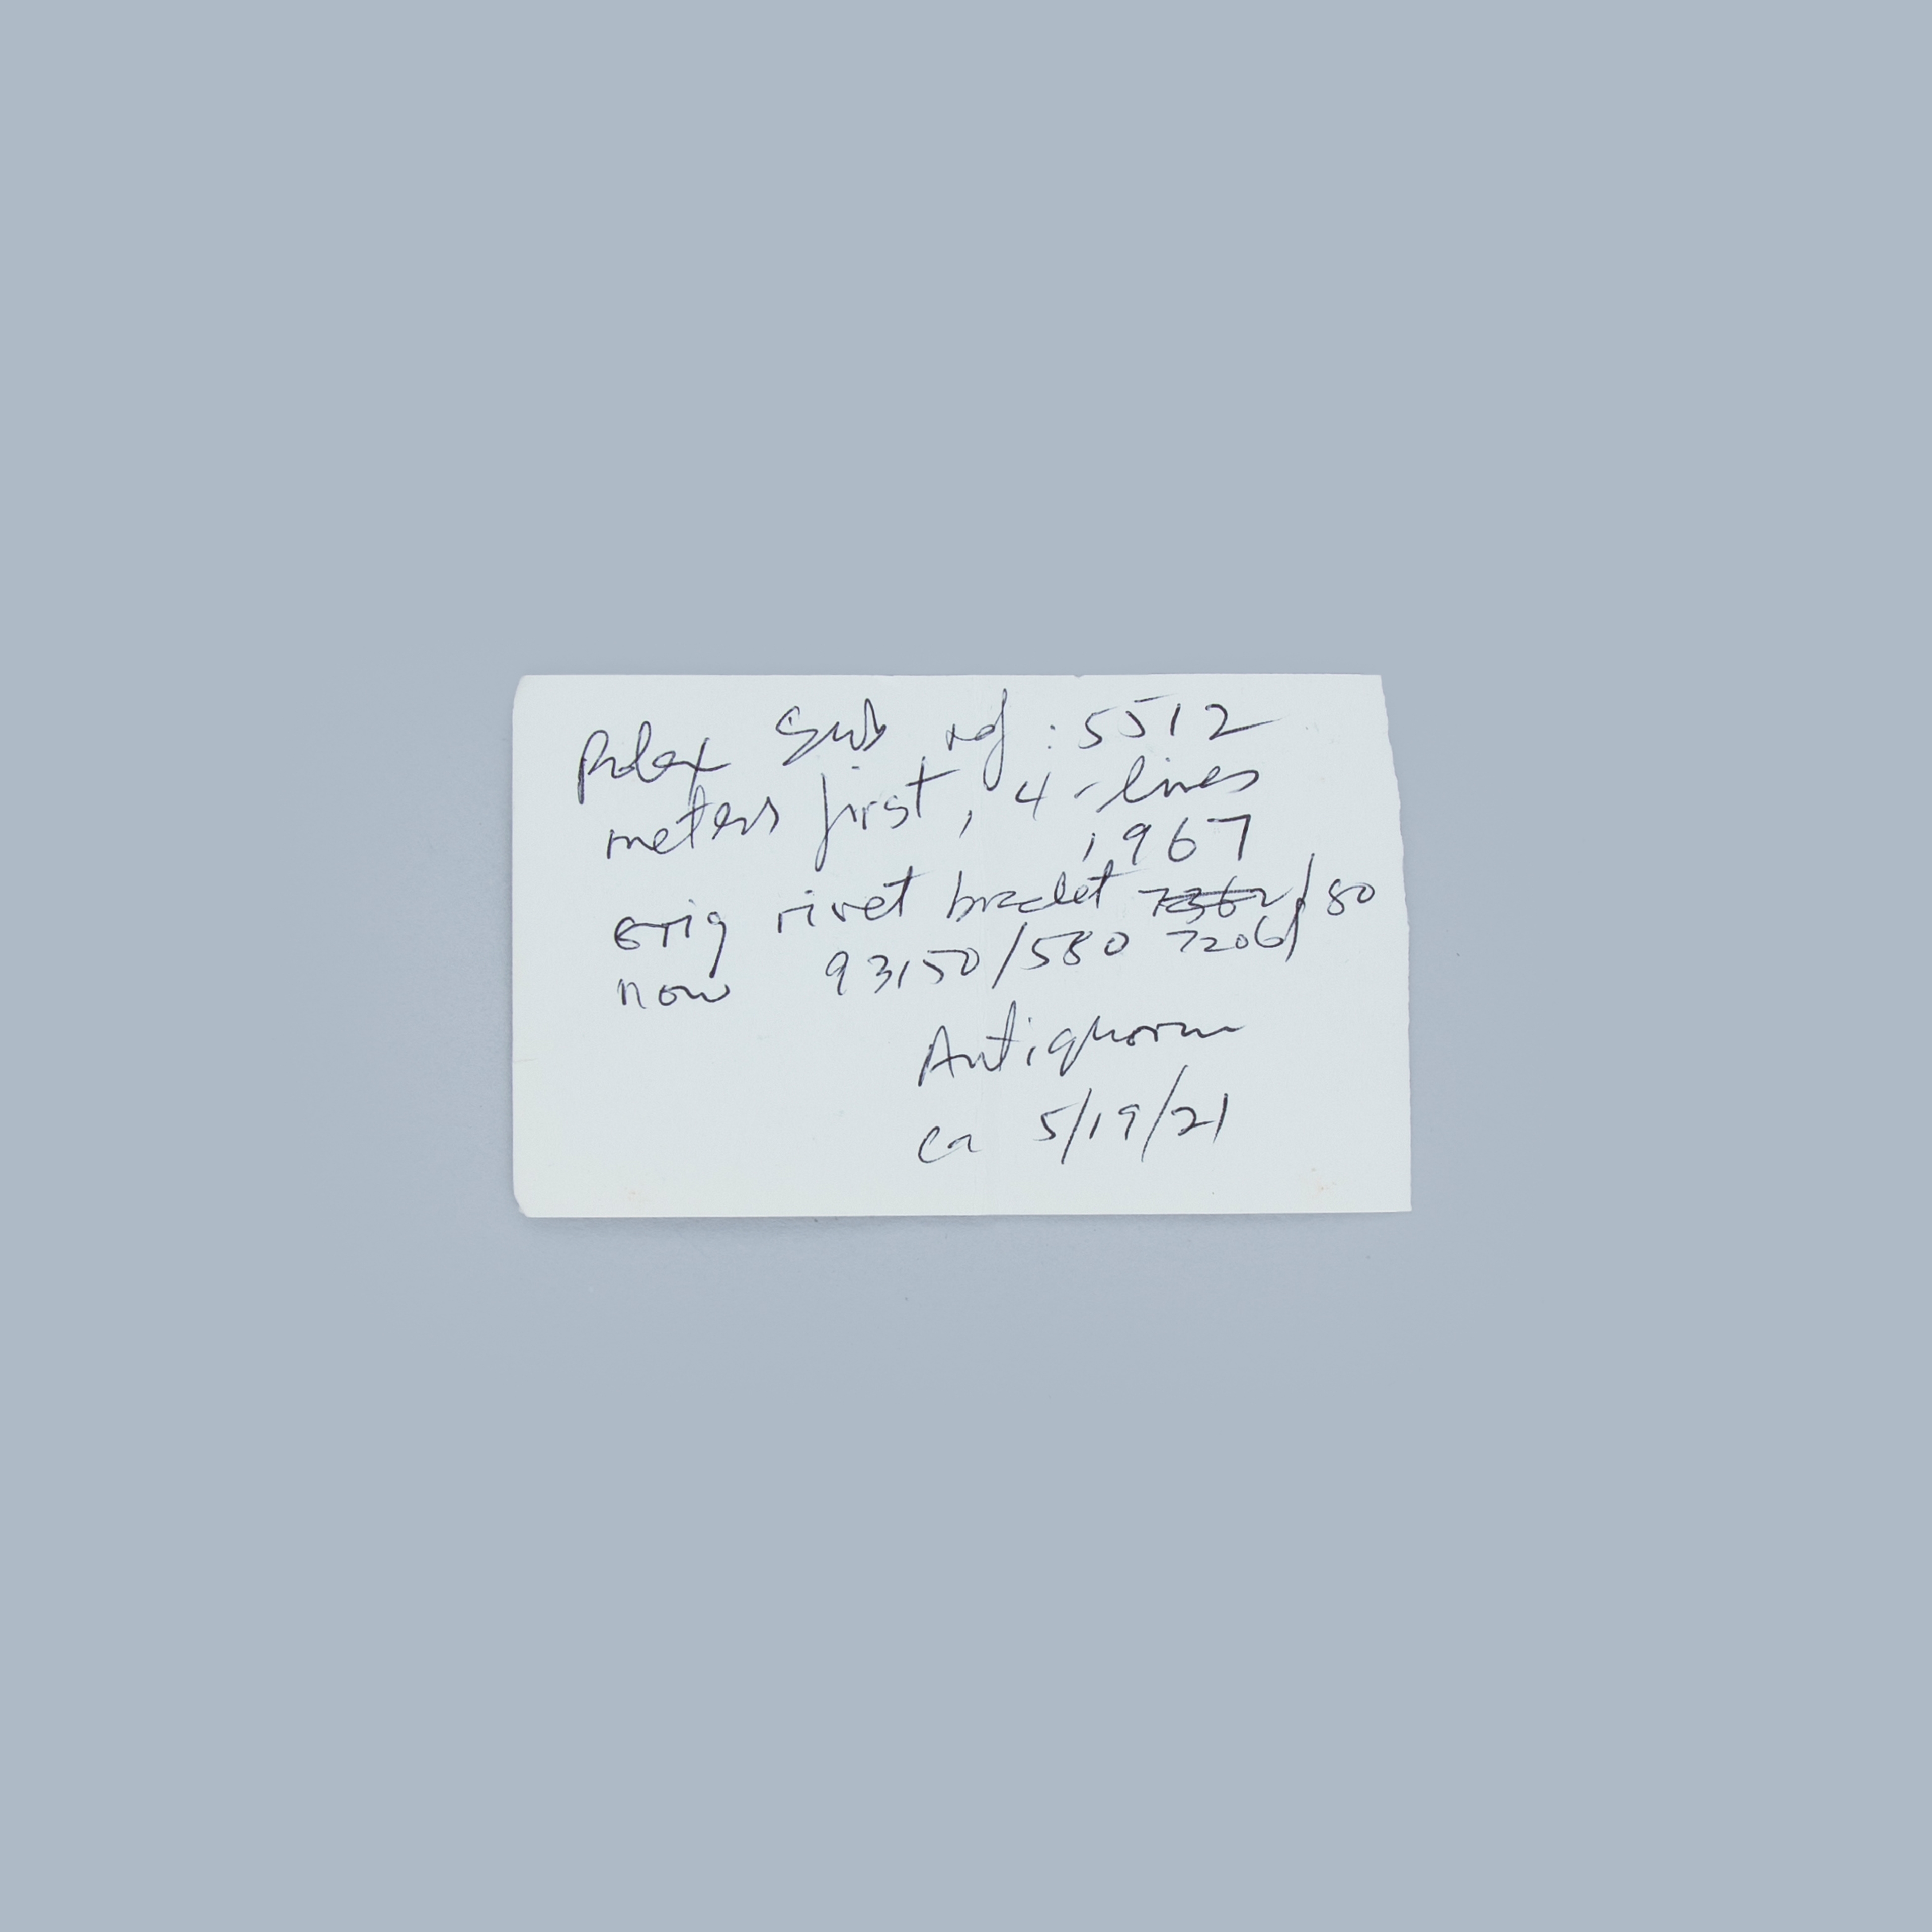 Rolex Sub ref: 5512
meters first, 4-lines
1967
orig rivet bracelet 7206/80
now 93150/580
Antiquorum
ca 5/19/21